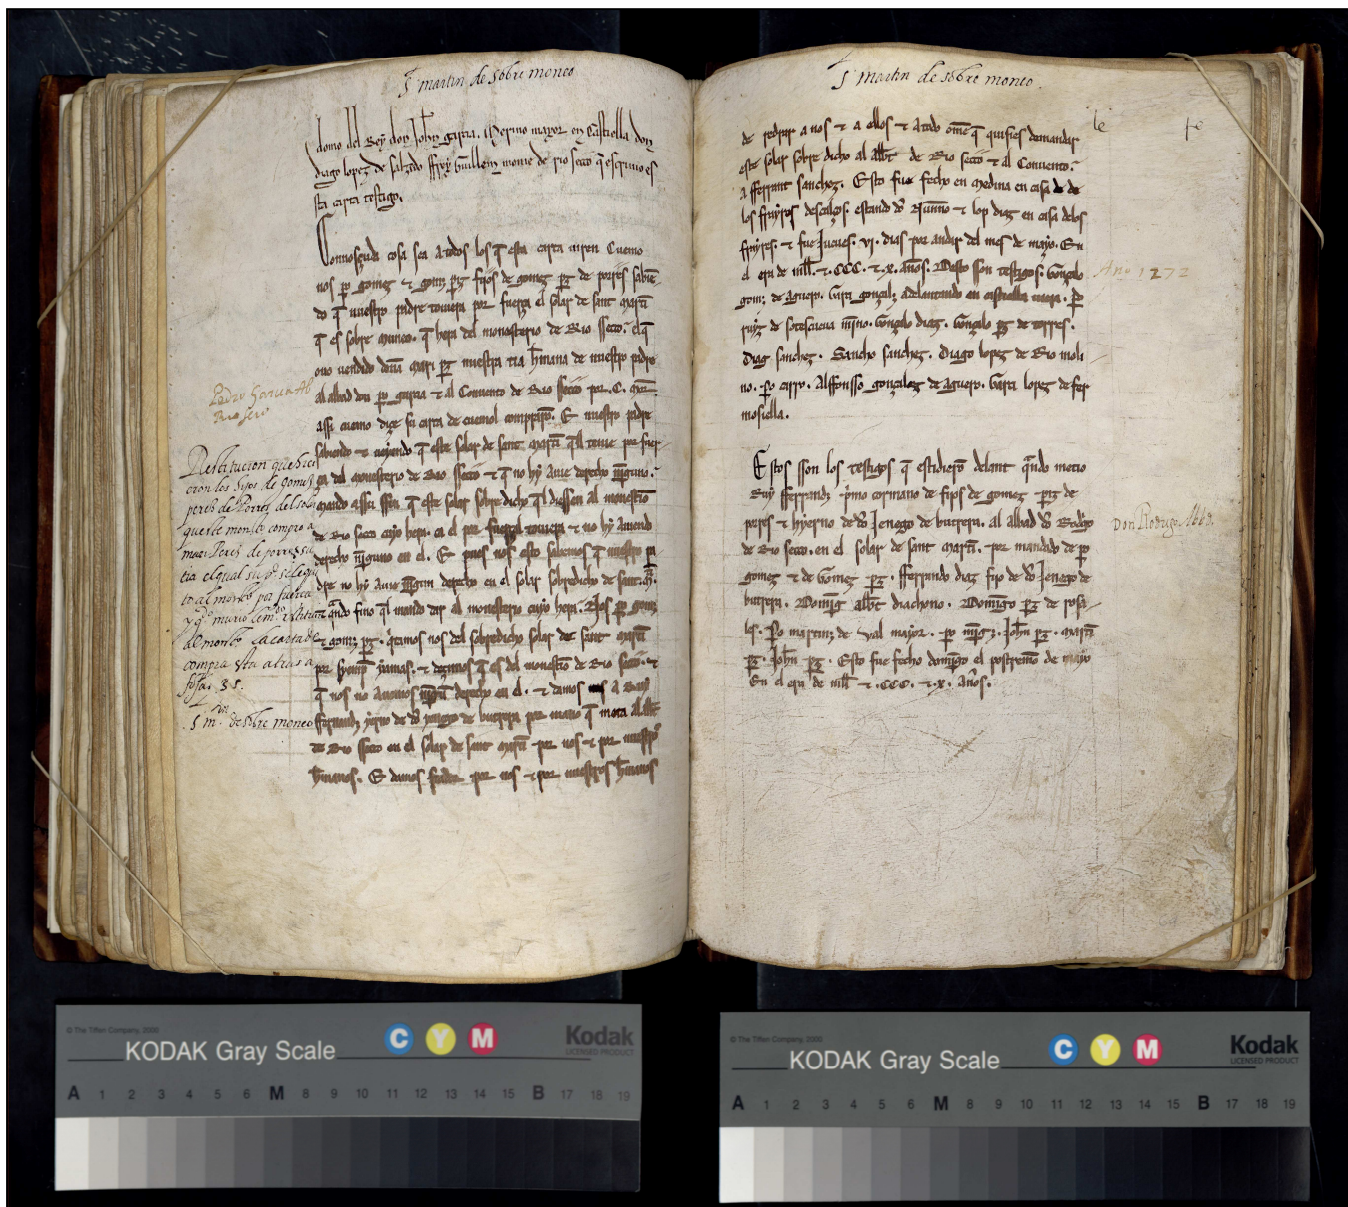 S martin de sobre moneo
domo del Rey don Johan garcia. Merino mayor en Castiella don
diago lopez de salzedo ffrey Guillem monie de rio seco q escriuio es
ta carta testigo.
Connosçuda cosa sea atodos los q esta carta uiren Cuemo
nos po gomez & gomz pz fijos de gomez pz de porres sabie
do q nuestro padre touera por fuerça el solar de sant marti
q es sobre muneo. q hera del monesterio de Rio sseco. elq
ouo uendido dena mari pz nuestra tia hmana de nuestro padre
al abbad don po garcia & al Conuento de Rio sseco por .C. mor
assi cuemo dize su carta de cuemol compraro. E nuestro padre
sabiendo & ueyendo q este solar de sant marti ql tenie por fuer
ça del monesterio de Rio sseco & q no hy auie derecho niguno.
mando assu ffin q este solar sobre dicho ql diessen al monestio
de Rio seco cuyo hera. ca el por fuerça touera & no hy auiendo
derecho niguno en el. E pues nos esto sabemos q nuestro pa
dre no hy auie nigun derecho en el solar sobredicho de sant m.
& qndo fino ql mando dar al monesterio cuyo hera. Nos po gomz
& gomz pz. qtamos nos del sobredicho solar de sant marti
por siemp yamas. & dezimos q es del monestio de Rio seco. &
q nos no auemos nigun derecho en el. & damos a Ruy
fferrandz yerno de do yenego de butrera por mano q meta al abbt
de Rio sseco en el solar de sant marti por nos & por nuestros
hmanos. E damos fiador por nos & por nuestros hmanos
Pedro Garcia Ab
Rio seco
Restitucion que hici
eron los hijos de gomez
perez de Porres del solar
que este monro compro a
mari Perez de porres su
tia el qual su pe se le qui
to al monro por fuerça
y qdo murio lem restituir
al monro. La carta de
compra esta atras a
foja. 35.
S min de sobre moneo
S martin de sobre moneo.
de redrar a nos & a ellos & atodo ome q quisies demandar
este solar sobre dicho al abbt de Rio seco & al Conuento.
a fferrant sanchez. Esto fue fecho en medina en casa de
los ffreyres descalços. estando do Nunno & lop diaz en casa delos
ffreyres. & fue Jueues. vi. dias por andar del mes de mayo. En
el era de mill. & .CCC. & .x. años. Desto sson testigos. Gonçalo
gomz de aguero. Garci gonçalz adelantado en castiella uieia. po
ruyz de sotescueua mino. Gonçalo diaz. Gonçalo pz de torres.
Diag sanchez. Sancho sanchez. Diago lopez de Rio moli
no. po carro. Alffonsso gonçalez de aguero. Garci lopez de fer
mosiella.
Año 1272
Estos sson los testigos q estidiero delant qndo metio
Ruy fferrandz primo cormano de fijos de gomez pz de
pores & hyerno de do Jenego de butrera. al abbad do Rodrigo
de Rio seco. en el solar de sant marti. por mandado de po
gomez & de Gomez pz. fferrando diaz fijo de do Jenego de
butrera. Domigo abbt diachono. Domingo pz de rosa
les. Po martinz de val mayor. po migz. Johan pz. marti
pz. Johan pz. Esto fue fecho domigo el postremo de mayo
En el era de mill & .CCC. & .x. años.
Don Rodrigo Abbd.
© The Tiffen Company, 2000
KODAK Gray Scale
C Y M
Kodak
LICENSED PRODUCT
A 1 2 3 4 5 6 M 8 9 10 11 12 13 14 15 B 17 18 19
© The Tiffen Company, 2000
KODAK Gray Scale
C Y M
Kodak
LICENSED PRODUCT
A 1 2 3 4 5 6 M 8 9 10 11 12 13 14 15 B 17 18 19